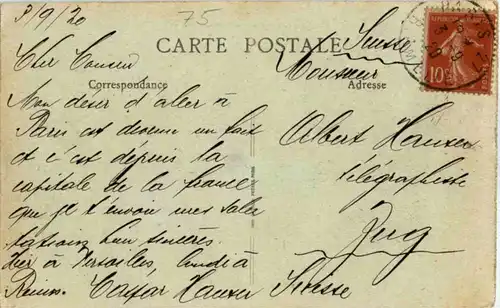 3/9/20
75
CARTE POSTALE
Suisse
Cher Cousin
Monsieur
Correspondance
Adresse
Mon désir d'aller à
Paris est devenu un fait
et c'est depuis la
capitale de la france
que je t'envoie mes salu
tations bien sincères.
Hier à Versailles, lundi à
Reims. Caspar Hauser
Albert Hauser
télégraphiste
Zug
Suisse
10